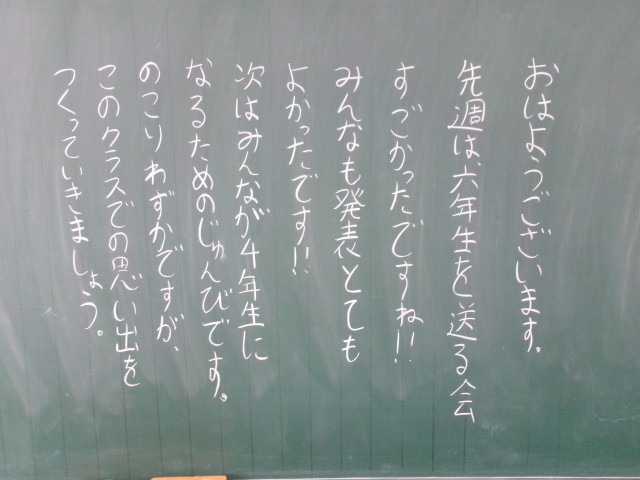 おはようございます。
先週は、六年生を送る会
すごかったですね!!
みんなも発表とても
よかったです!!
次はみんなが4年生に
なるためのじゅんびです。
のこりわずかですが、
このクラスでの思い出を
つくっていきましょう。